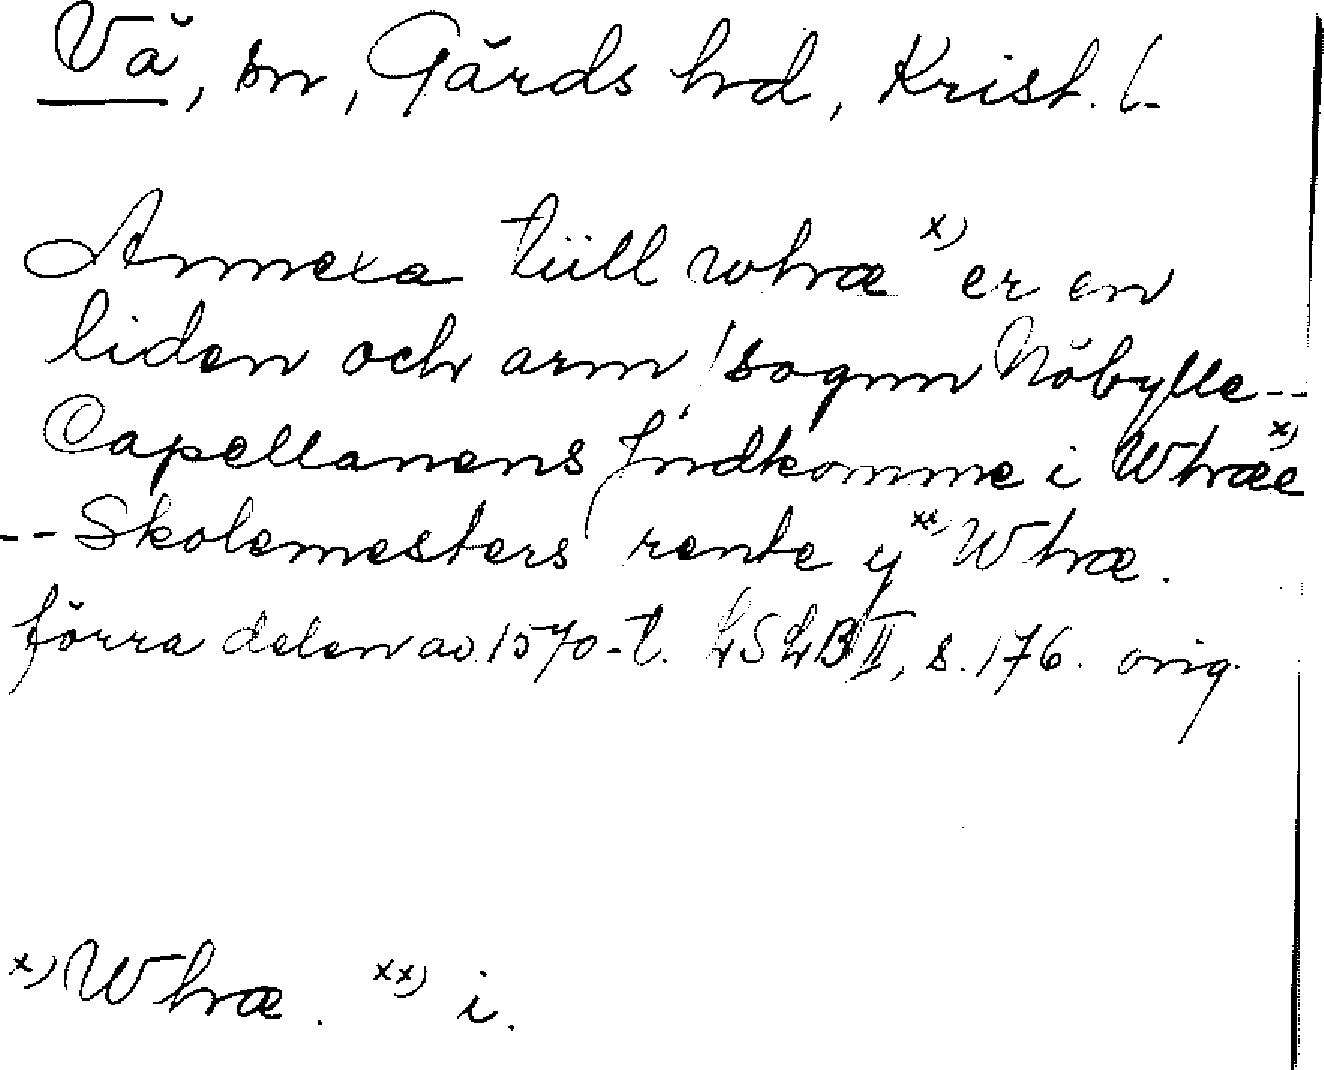 Vä, sn, Gärds hd, Krist. l.
Annexa tiill whæ x) er en
liden och arm sognn Nöbylle--
Capellanens Jndkomme i Whæe x)
-- Skolemesters rente y xx) Whæ.
förra delen av 1570-t. LSLB II, s. 176. orig.
x) Whæ. xx) i.